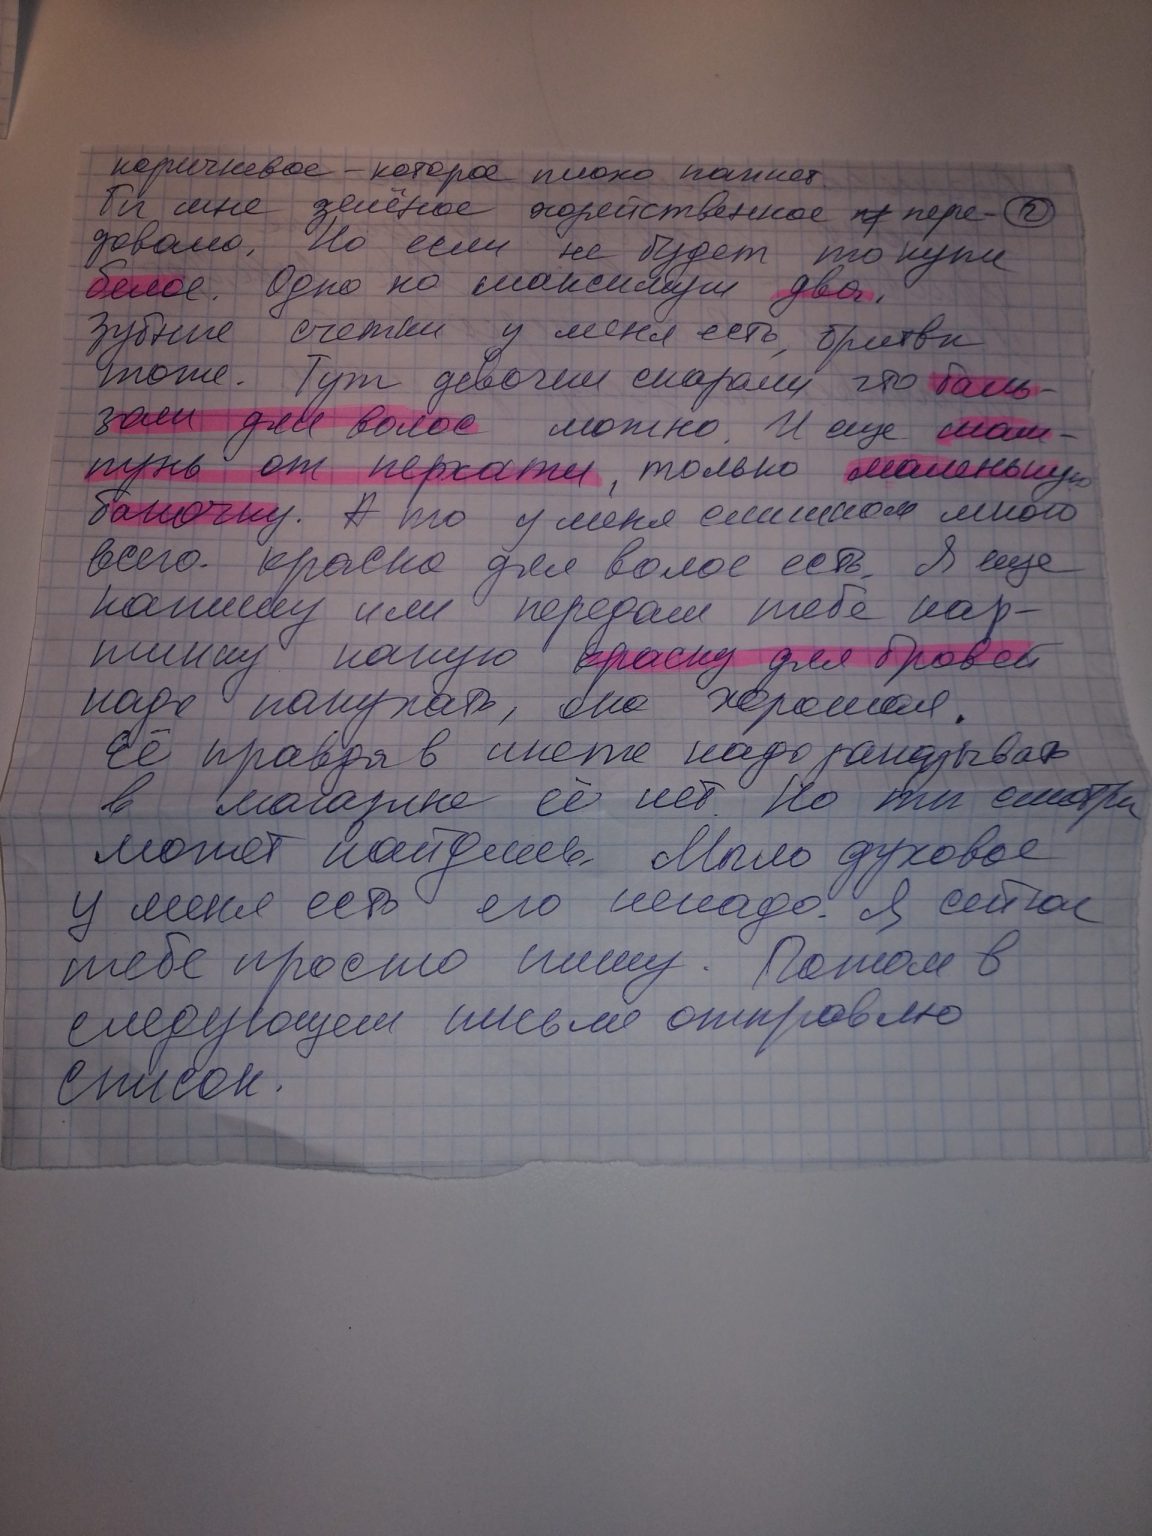 коричневое - которое плохо пахнет
Ты мне зелёное хозейственное пере- ②
довала. Но если не будет то купи
белое. Одно но максимум два.
Зубные счетки у меня есть, бритвы
тоже. Тут девочки сказали что баль-
зам для волос можно. И еще шам-
пунь от перхоти, только маленькую
баночку. А то у меня слишком много
всего. краска для волос есть. Я еще
напишу или передам тебе кар-
тинку какую краску для бровей
надо покупать, она хорошая.
Её правда в инете надо заказывать
в магазине её нет. Но ты смотри
может найдешь. Мыло духовое
у меня есть его ненадо. Я сейчас
тебе просто пишу. Потом в
следующем письме отправлю
список.